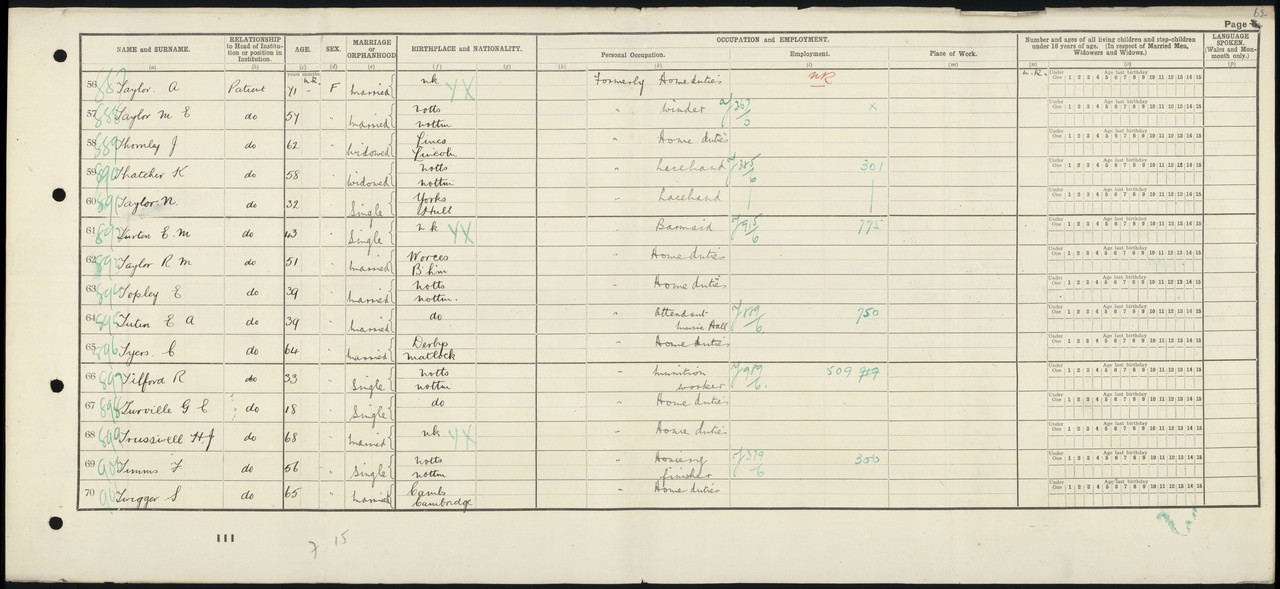 62
Page
NAME and SURNAME.
RELATIONSHIP to Head of Institution or position in Institution.
AGE.
SEX.
MARRIAGE or ORPHANHOOD
BIRTHPLACE and NATIONALITY.
OCCUPATION AND EMPLOYMENT.
Personal Occupation.
Employment.
Place of Work.
Number and ages of all living children and step-children under 16 years of age. (In respect of Married Men, Widowers and Widows.)
LANGUAGE SPOKEN. (Wales and Monmouth only.)
(a) (b) (c) (d) (e) (f) (g) (h) (k) (l) (m) (n) (o) (p)
years months
56 887 Taylor. A Patient 71 - F Married nk YX Formerly Home duties NR n.R.
57 888 Taylor M E do 57 " Married Notts Nottm " Winder 367/0 x
58 889 Thornley J do 62 " Widowed Lincs Lincoln " Home duties
59 890 Thatcher K do 58 " Widowed Notts Nottm " Lacehand 385/6 301
60 891 Taylor. N. do 32 " Single Yorks Hull " Lacehand
61 892 Turton E. M do 43 " Single n k YX " Barmaid 915/6 775
62 893 Taylor R M do 51 " Married Worces B'hm " Home duties
63 894 Topley E do 39 " Married Notts Nottm. " Home duties
64 895 Tutin E A do 39 " Married do " Attendant Music Hall 889/6 750
65 896 Tyers. C do 64 " Married Derby Matlock " Home duties
66 897 Tilford R do 33 " Single Notts Nottm " Munition worker 989/6. 509
67 898 Turville G E do 18 " Single do " Home duties
68 899 Trusswell H. J do 68 " Married nk YX " Home duties
69 Timms F do 56 " Single Notts Nottm " Hosiery finisher 379/6 300
70 Twigger S do 65 " Married Cambs Cambridge " Home duties
Under One 1 2 3 4 5 6 7 8 9 10 11 12 13 14 15
Age last birthday
111
7 15